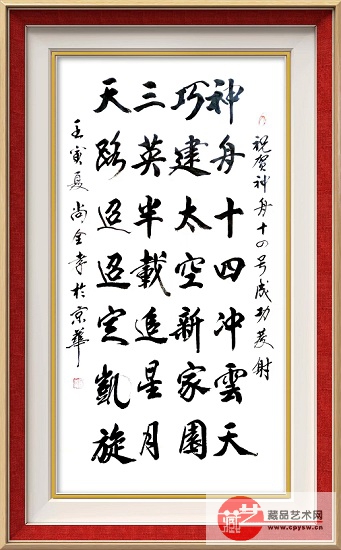 祝贺神舟十四号成功发射
神舟十四冲雲天
巧建太空新家園
三英半載追星月
天路迢迢定凱旋
壬寅夏尚全孝於京華
藏艺
藏品艺术网
www.cpysw.cn